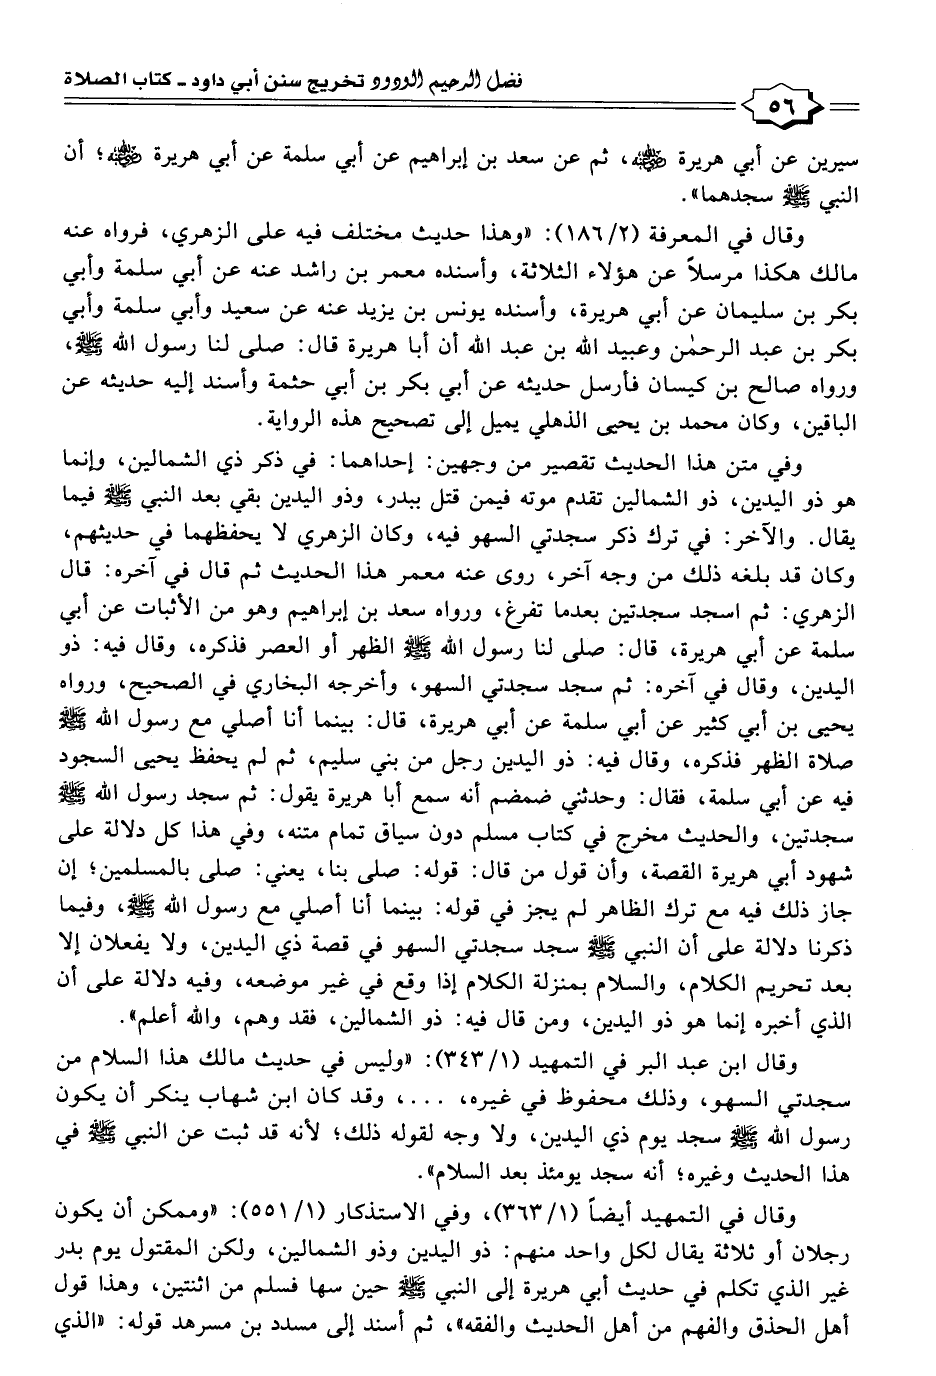 فضل الرحيم الودود تخريج سنن أبي داود - كتاب الصلاة
٥٦
سيرين عن أبي هريرة رضي الله عنه، ثم عن سعد بن إبراهيم عن أبي سلمة عن أبي هريرة رضي الله عنه؛ أن
النبي ﷺ سجدهما».
وقال في المعرفة (١٨٦/٢): «وهذا حديث مختلف فيه على الزهري، فرواه عنه
مالك هكذا مرسلاً عن هؤلاء الثلاثة، وأسنده معمر بن راشد عنه عن أبي سلمة وأبي
بكر بن سليمان عن أبي هريرة، وأسنده يونس بن يزيد عنه عن سعيد وأبي سلمة وأبي
بكر بن عبد الرحمٰن وعبيد الله بن عبد الله أن أبا هريرة قال: صلى لنا رسول الله ﷺ،
ورواه صالح بن كيسان فأرسل حديثه عن أبي بكر بن أبي حثمة وأسند إليه حديثه عن
الباقين، وكان محمد بن يحيى الذهلي يميل إلى تصحيح هذه الرواية.
وفي متن هذا الحديث تقصير من وجهين: إحداهما: في ذكر ذي الشمالين، وإنما
هو ذو اليدين، ذو الشمالين تقدم موته فيمن قتل ببدر، وذو اليدين بقي بعد النبي ﷺ فيما
يقال. والآخر: في ترك ذكر سجدتي السهو فيه، وكان الزهري لا يحفظهما في حديثهم،
وكان قد بلغه ذلك من وجه آخر، روى عنه معمر هذا الحديث ثم قال في آخره: قال
الزهري: ثم اسجد سجدتين بعدما تفرغ، ورواه سعد بن إبراهيم وهو من الأثبات عن أبي
سلمة عن أبي هريرة، قال: صلى لنا رسول الله ﷺ الظهر أو العصر فذكره، وقال فيه: ذو
اليدين، وقال في آخره: ثم سجد سجدتي السهو، وأخرجه البخاري في الصحيح، ورواه
يحيى بن أبي كثير عن أبي سلمة عن أبي هريرة، قال: بينما أنا أصلي مع رسول الله ﷺ
صلاة الظهر فذكره، وقال فيه: ذو اليدين رجل من بني سليم، ثم لم يحفظ يحيى السجود
فيه عن أبي سلمة، فقال: وحدثني ضمضم أنه سمع أبا هريرة يقول: ثم سجد رسول الله ﷺ
سجدتين، والحديث مخرج في كتاب مسلم دون سياق تمام متنه، وفي هذا كل دلالة على
شهود أبي هريرة القصة، وأن قول من قال: قوله: صلى بنا، يعني: صلى بالمسلمين؛ إن
جاز ذلك فيه مع ترك الظاهر لم يجز في قوله: بينما أنا أصلي مع رسول الله ﷺ، وفيما
ذكرنا دلالة على أن النبي ﷺ سجد سجدتي السهو في قصة ذي اليدين، ولا يفعلان إلا
بعد تحريم الكلام، والسلام بمنزلة الكلام إذا وقع في غير موضعه، وفيه دلالة على أن
الذي أخبره إنما هو ذو اليدين، ومن قال فيه: ذو الشمالين، فقد وهم، والله أعلم».
وقال ابن عبد البر في التمهيد (٣٤٣/١): «وليس في حديث مالك هذا السلام من
سجدتي السهو، وذلك محفوظ في غيره، ...، وقد كان ابن شهاب ينكر أن يكون
رسول الله ﷺ سجد يوم ذي اليدين، ولا وجه لقوله ذلك؛ لأنه قد ثبت عن النبي ﷺ في
هذا الحديث وغيره؛ أنه سجد يومئذ بعد السلام».
وقال في التمهيد أيضاً (٣٦٣/١)، وفي الاستذكار (٥٥١/١): «وممكن أن يكون
رجلان أو ثلاثة يقال لكل واحد منهم: ذو اليدين وذو الشمالين، ولكن المقتول يوم بدر
غير الذي تكلم في حديث أبي هريرة إلى النبي ﷺ حين سها فسلم من اثنتين، وهذا قول
أهل الحذق والفهم من أهل الحديث والفقه»، ثم أسند إلى مسدد بن مسرهد قوله: «الذي